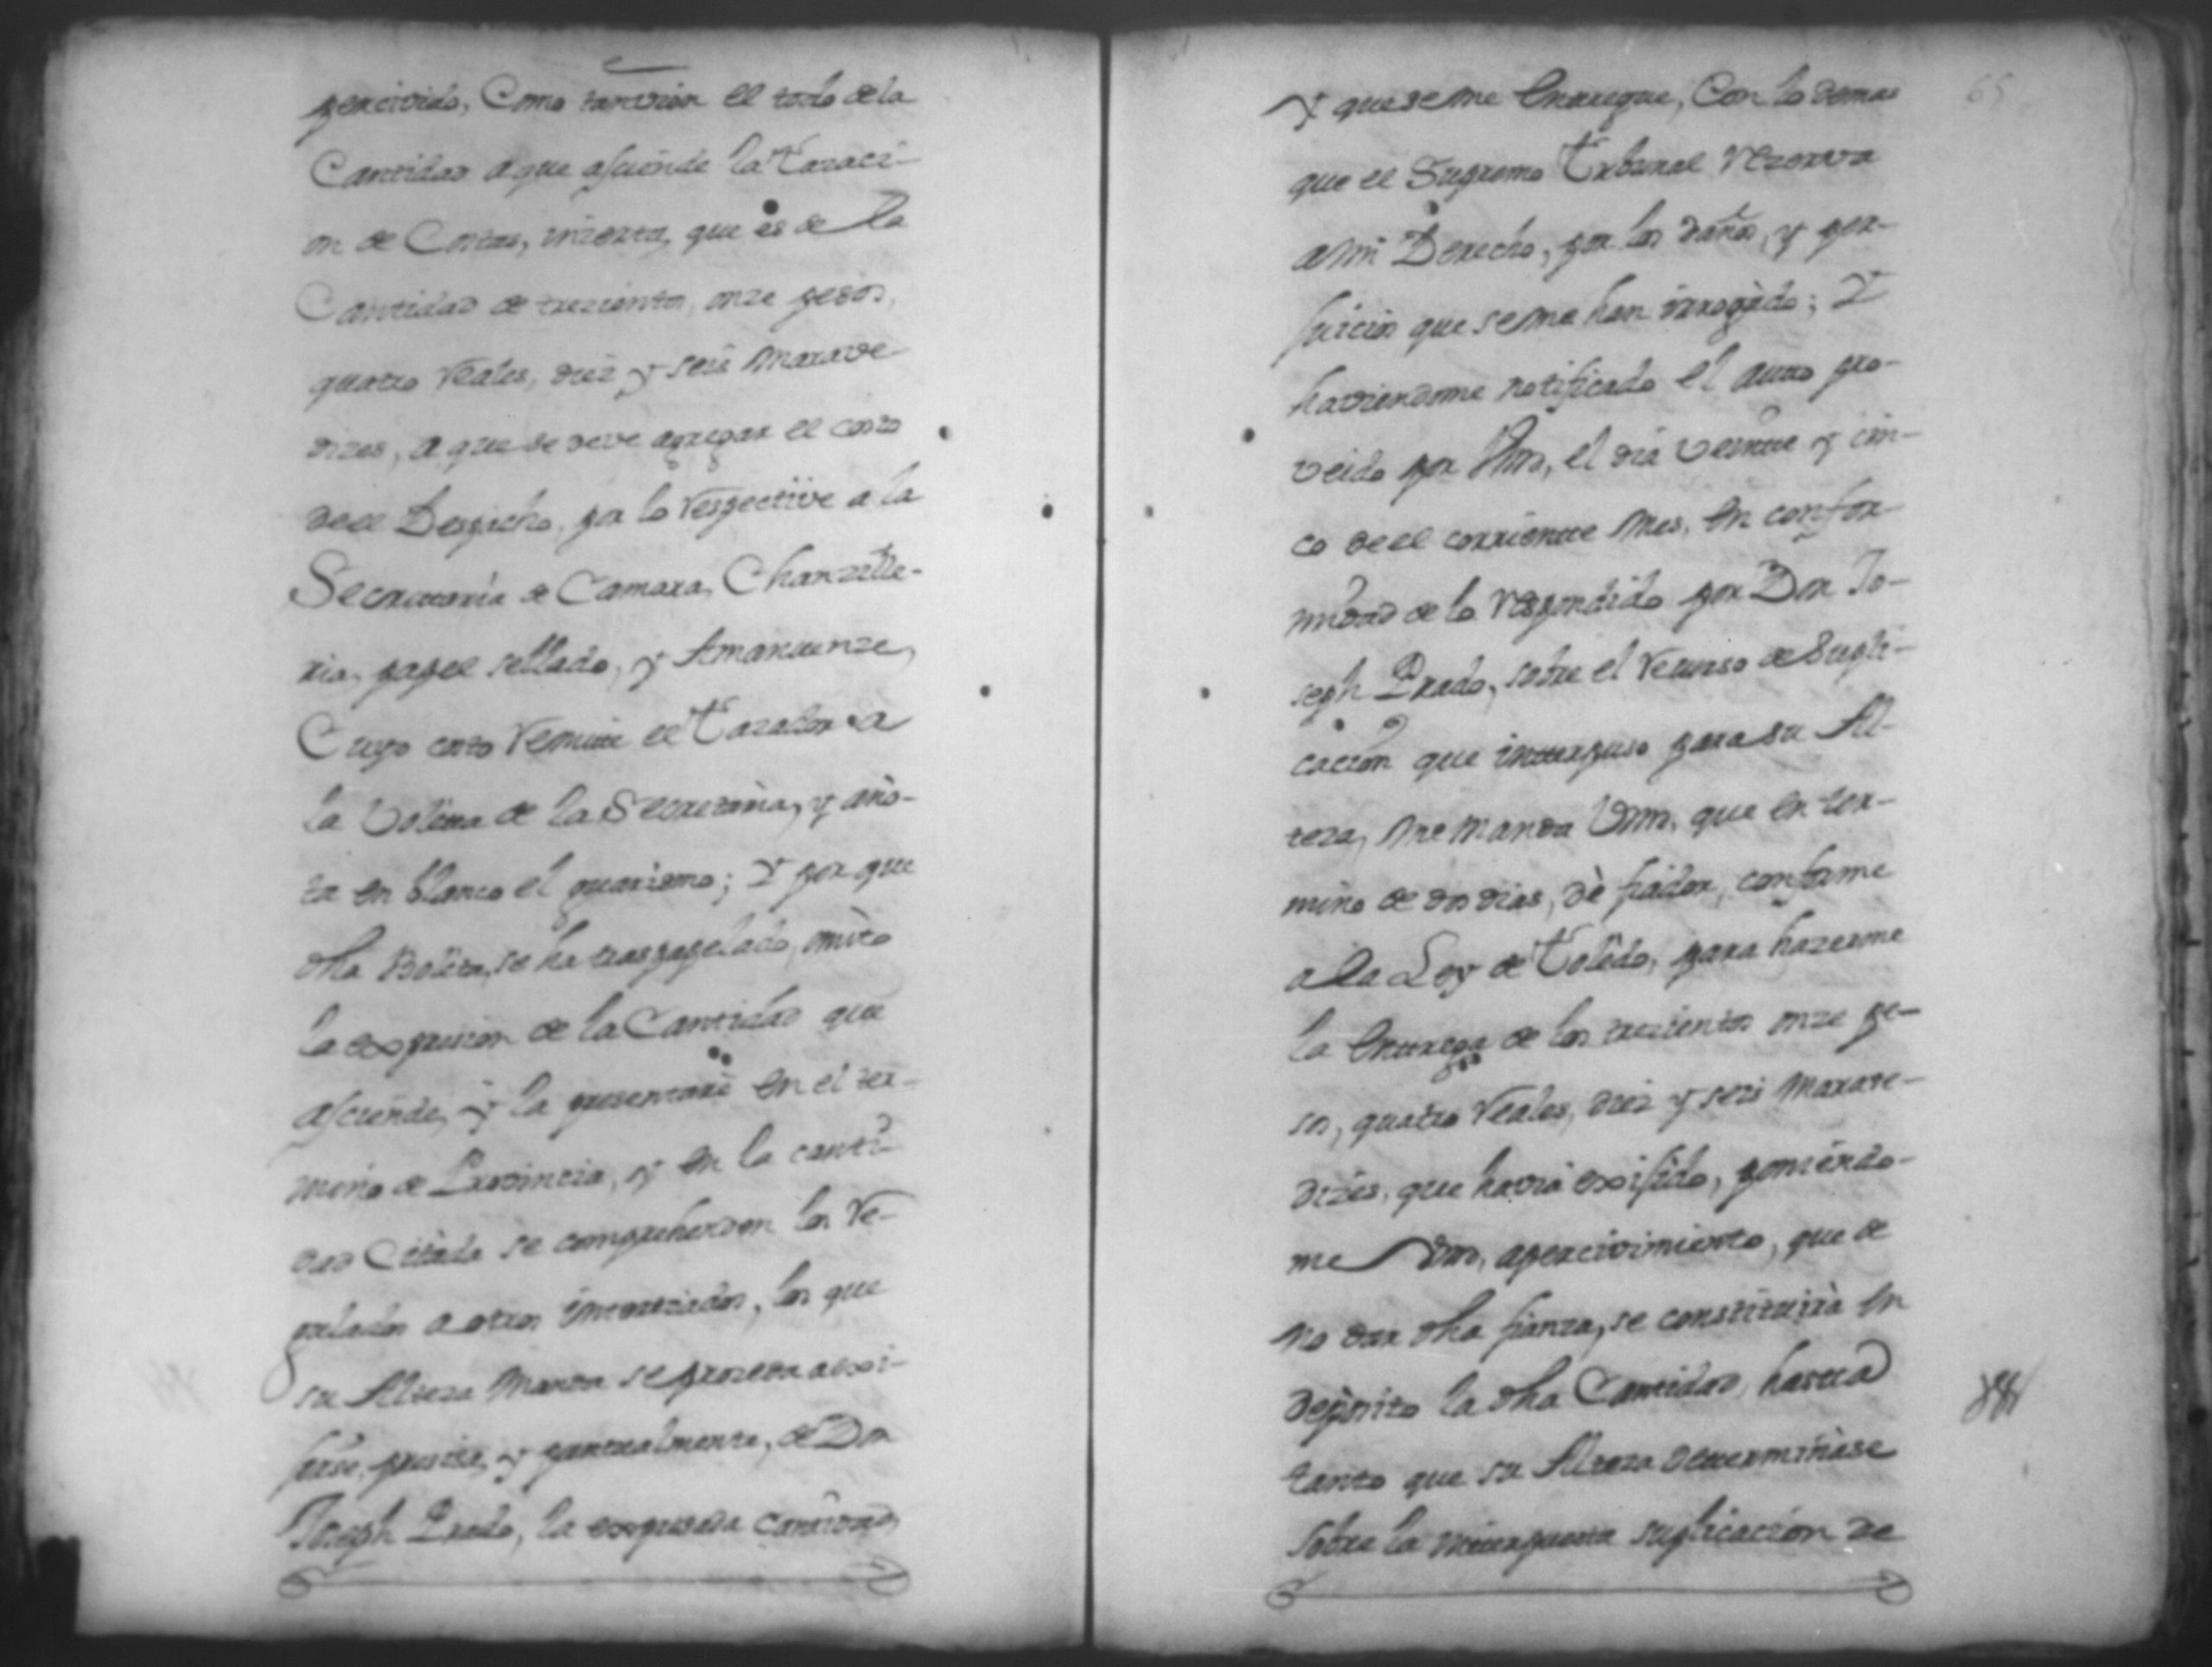 percivido, Como tanvien el todo dela
Cantidad aque asciende la Tasaci-
on de Costas, inserta, que es de la
Cantidad de trezientos, onze pesos,
quatro Reales, diez y seis Marave-
dizes, a que se deve agregar el costo
deel Despacho, por lo respective a la
Secretaria de Camara, Chanzille-
ria, papel sellado, y Amanuenze,
Cuyo costo Remite el Tasador a
la Voleta de la Secretaria, y ano-
ta en blanco el guarismo; Y por que
dha Boleta, se ha traspapelado, omito
la expresion de la Cantidad que
asciende, y la presentare en el ter-
mino de Provincia, y en la canti-
dad Citada se comprehenden los Re-
gulados a otros intereziados, los que
su Alteza Manda se prozeda a exi-
girse, precisa, y puntualmente, de Don
Joseph Prado, la expresada cantidad,
65
Y que se me Entregue, Con lo demas
que el Supremo Tribunal Rezerva
a Mi Derecho, por los daños, y per-
juicios que se me han irrogado; Y
haviendome notificado el auto pro-
veido por Vmd, el dia Veinte y cin-
co deel corriente Mes, en confor-
midad de lo respondido por Don Jo-
seph Prado, sobre el Recurso de Supli-
cacion que interpuso para su Al-
teza, Me Manda Vmd, que en ter-
mino de dos dias, dè fiador, conforme
a la Ley de Toledo, para hazerme
la Entrega de los trezientos onze pe-
sos, quatro Reales, diez y seis Marave-
dizes, que havia exisido, poniendo-
me Vmd, apercivimiento, que de
no dar dha fianza, se constituirà en
deposito la dha Cantidad, hasta
tanto que su Alteza determinase
sobre la interpuesta suplicacion de